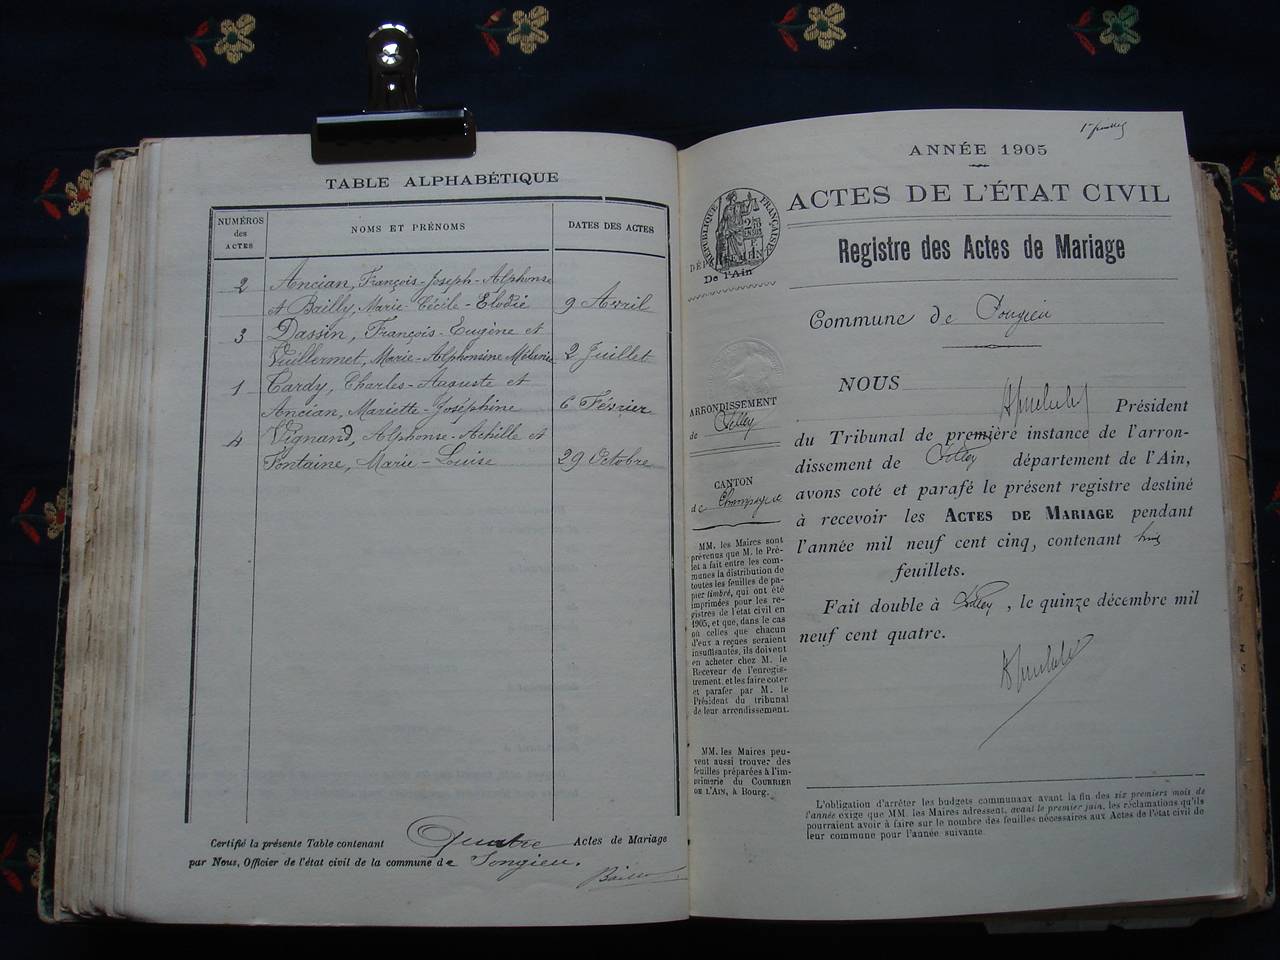 TABLE ALPHABÉTIQUE
NUMÉROS
des
ACTES
NOMS ET PRÉNOMS
DATES DES ACTES
2 Ancian, François-Joseph-Alphonse
et Bailly, Marie-Cécile-Elodie 9 Avril
3 Dassin, François-Eugène et
Vuillermet, Marie-Alphonsine Mélanie 2 Juillet
1 Tardy, Charles-Auguste et
Ancian, Mariette-Joséphine 6 Février
4 Vignand, Alphonse-Achille et
Fontaine, Marie-Louise 29 Octobre
Certifié la présente Table contenant Quatre Actes de Mariage
par Nous, Officier de l'état civil de la commune de Songieu.
ANNÉE 1905
ACTES DE L'ÉTAT CIVIL
Registre des Actes de Mariage
RÉPUBLIQUE FRANÇAISE
De l'Ain
Commune de Songieu
NOUS
Président
du Tribunal de première instance de l'arron-
dissement de Belley département de l'Ain,
avons coté et parafé le présent registre destiné
à recevoir les ACTES DE MARIAGE pendant
l'année mil neuf cent cinq, contenant
feuillets.
Fait double à Belley, le quinze décembre mil
neuf cent quatre.
ARRONDISSEMENT
de Belley
CANTON
de Champagne
MM. les Maires sont
prévenus que M. le Pré-
fet a fait entre les com-
munes la distribution de
toutes les feuilles de pa-
pier timbré, qui ont été
imprimées pour les re-
gistres de l'état civil en
1905, et que, dans le cas
où celles que chacun
d'eux a reçues seraient
insuffisantes, ils doivent
en acheter chez M. le
Receveur de l'enregis-
trement, et les faire coter
et parafer par M. le
Président du tribunal
de leur arrondissement.
MM. les Maires peu-
vent aussi trouver des
feuilles préparées à l'im-
primerie du COURRIER
DE L'AIN, à Bourg.
L'obligation d'arrêter les budgets communaux avant la fin des six premiers mois de
l'année exige que MM. les Maires adressent, avant le premier juin, les réclamations qu'ils
pourraient avoir à faire sur le nombre des feuilles nécessaires aux Actes de l'état civil de
leur commune pour l'année suivante